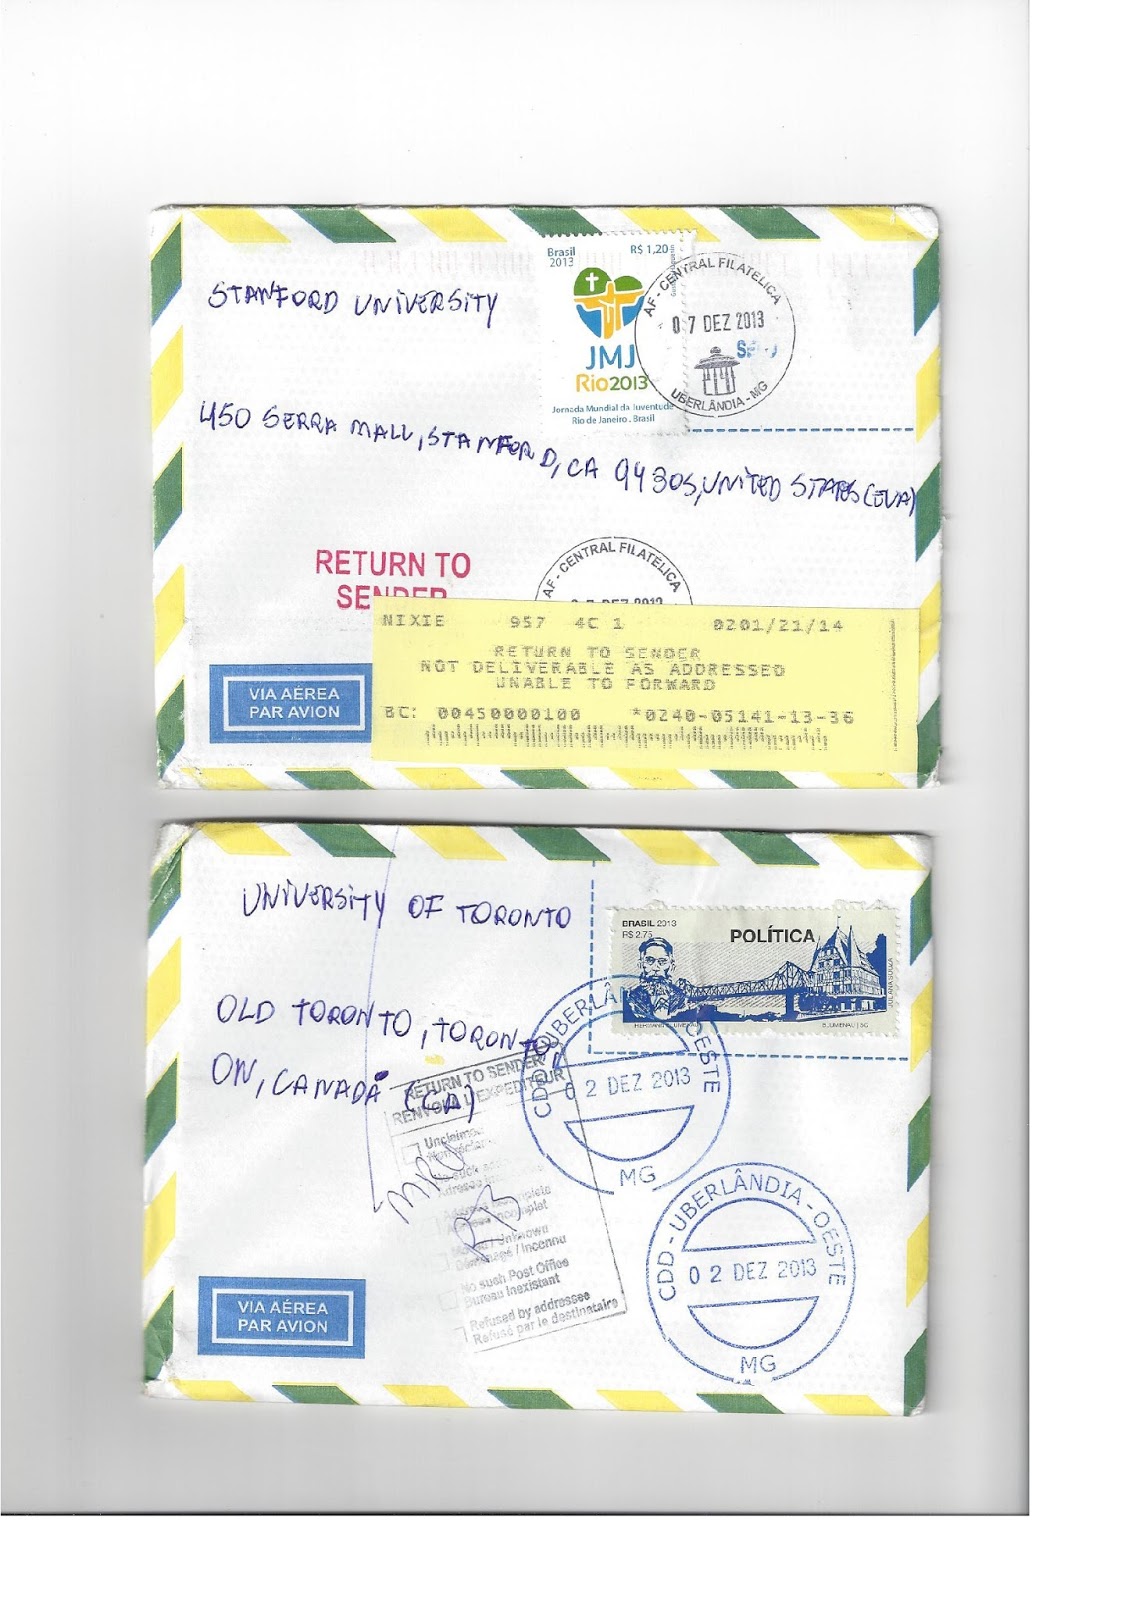 STANFORD UNIVERSITY
Brasil
2013
R$ 1,20
JMJ
Rio2013
Jornada Mundial da Juventude
Rio de Janeiro . Brasil
AF - CENTRAL FILATÉLICA
07 DEZ 2013
UBERLÂNDIA - MG
450 SERRA MALL, STANFORD, CA 94305, UNITED STATES (EUA)
RETURN TO
SENDER
AF - CENTRAL FILATÉLICA
NIXIE 957 4C 1 0201/21/14
RETURN TO SENDER
NOT DELIVERABLE AS ADDRESSED
UNABLE TO FORWARD
BC: 00450000100 *0240-05141-13-36
VIA AÉREA
PAR AVION
UNIVERSITY OF TORONTO
BRASIL 2013
R$ 2,75
POLÍTICA
HERMANN BLUMENAU
BLUMENAU | SC
OLD TORONTO, TORONTO,
ON, CANADÁ (CA)
CDD - UBERLÂNDIA - OESTE
02 DEZ 2013
MG
RETURN TO SENDER
RENVOI À L'EXPÉDITEUR
Unclaimed
Incomplet
Unknown
Déménagé / Inconnu
No such Post Office
Bureau Inexistant
Refused by addressee
Refusé par le destinataire
CDD - UBERLÂNDIA - OESTE
02 DEZ 2013
MG
VIA AÉREA
PAR AVION